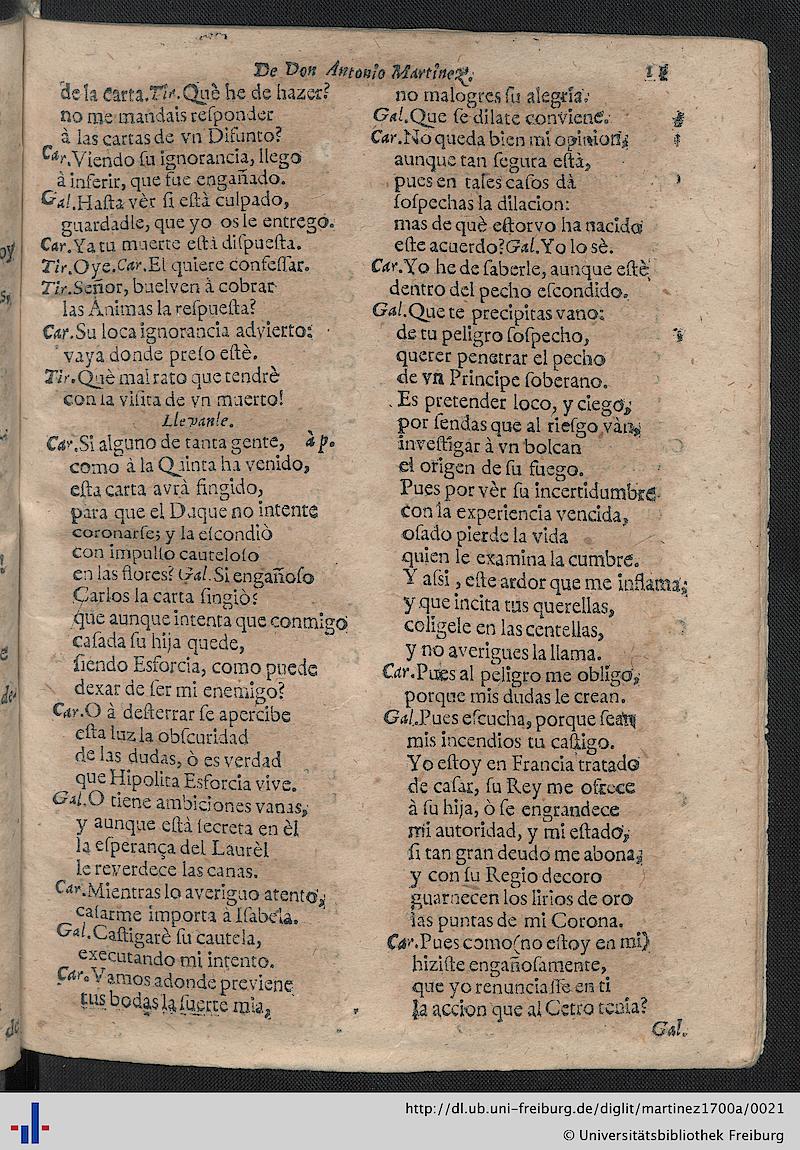 De Don Antonio Martinez.
de la carta. Tir. Què he de hazer?
no me mandais reſponder
à las cartas de vn Difunto?
Car. Viendo ſu ignorancia, llego
à inferir, que fue engañado.
Gal. Haſta vèr ſi eſtà culpado,
guardadle, que yo os le entrego.
Car. Ya tu muerte eſtà diſpueſta.
Tir. Oye. Car. El quiere confeſſar.
Tir. Señor, buelven à cobrar
las Animas la reſpueſta?
Car. Su loca ignorancia advierto:
vaya donde preſo eſtè.
Tir. Què mal rato que tendrè
con la viſita de vn muerto!
Llevanle.
Car. Si alguno de tanta gente, à p.
como à la Quinta ha venido,
eſta carta avrà fingido,
para que el Duque no intente
coronarſe; y la eſcondiò
con impulſo cauteloſo
en las flores? Gal. Si engañoſo
Carlos la carta fingiò?
que aunque intenta que conmigo
caſada ſu hija quede,
ſiendo Esforcia, como puede
dexar de ſer mi enemigo?
Car. O à deſterrar ſe apercibe
eſta luz la obſcuridad
de las dudas, ò es verdad
que Hipolita Esforcia vive.
Gal. O tiene ambiciones vanas,
y aunque eſtà ſecreta en èl
la eſperança del Laurèl
le reverdece las canas.
Car. Mientras lo averiguo atento,
caſarme importa à Iſabela.
Gal. Caſtigarè ſu cautela,
executando mi intento.
Car. Vamos adonde previene
tus bodas la ſuerte mia,
no malogres ſu alegria.
Gal. Que ſe dilate conviene.
Car. No queda bien mi opinion,
aunque tan ſegura eſtà,
pues en tales caſos dà
ſoſpechas la dilacion:
mas de què eſtorvo ha nacido
eſte acuerdo? Gal. Yo lo sè.
Car. Yo he de ſaberle, aunque eſtè
dentro del pecho eſcondido.
Gal. Que te precipitas vano:
de tu peligro ſoſpecho,
querer penetrar el pecho
de vn Principe ſoberano.
Es pretender loco, y ciego,
por ſendas que al rieſgo vàn,
inveſtigar à vn bolcan
el origen de ſu fuego.
Pues por vèr ſu incertidumbre
con la experiencia vencida,
oſado pierde la vida
quien le examina la cumbre.
Y aſsi, eſte ardor que me inflama,
y que incita tus querellas,
coligele en las centellas,
y no averigues la llama.
Car. Pues al peligro me obligo,
porque mis dudas le crean.
Gal. Pues eſcucha, porque ſean
mis incendios tu caſtigo.
Yo eſtoy en Francia tratado
de caſar, ſu Rey me ofrece
à ſu hija, ò ſe engrandece
mi autoridad, y mi eſtado,
ſi tan gran deudo me abona,
y con ſu Regio decoro
guarnecen los lirios de oro
las puntas de mi Corona.
Car. Pues como (no eſtoy en mi)
hiziſte engañoſamente,
que yo renunciaſſe en ti
la accion que al Cetro tenia?
Gal.
http://dl.ub.uni-freiburg.de/diglit/martinez1700a/0021
© Universitätsbibliothek Freiburg